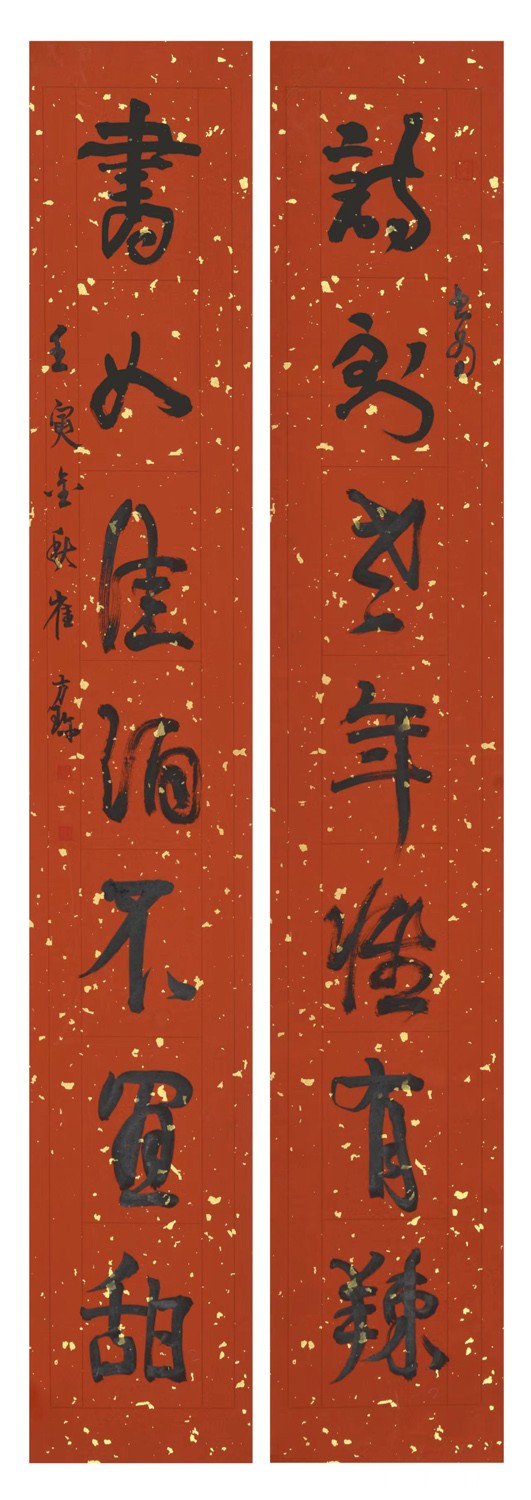 詩到老年惟有辣
書如佳酒不宜甜
壬寅金秋崔方